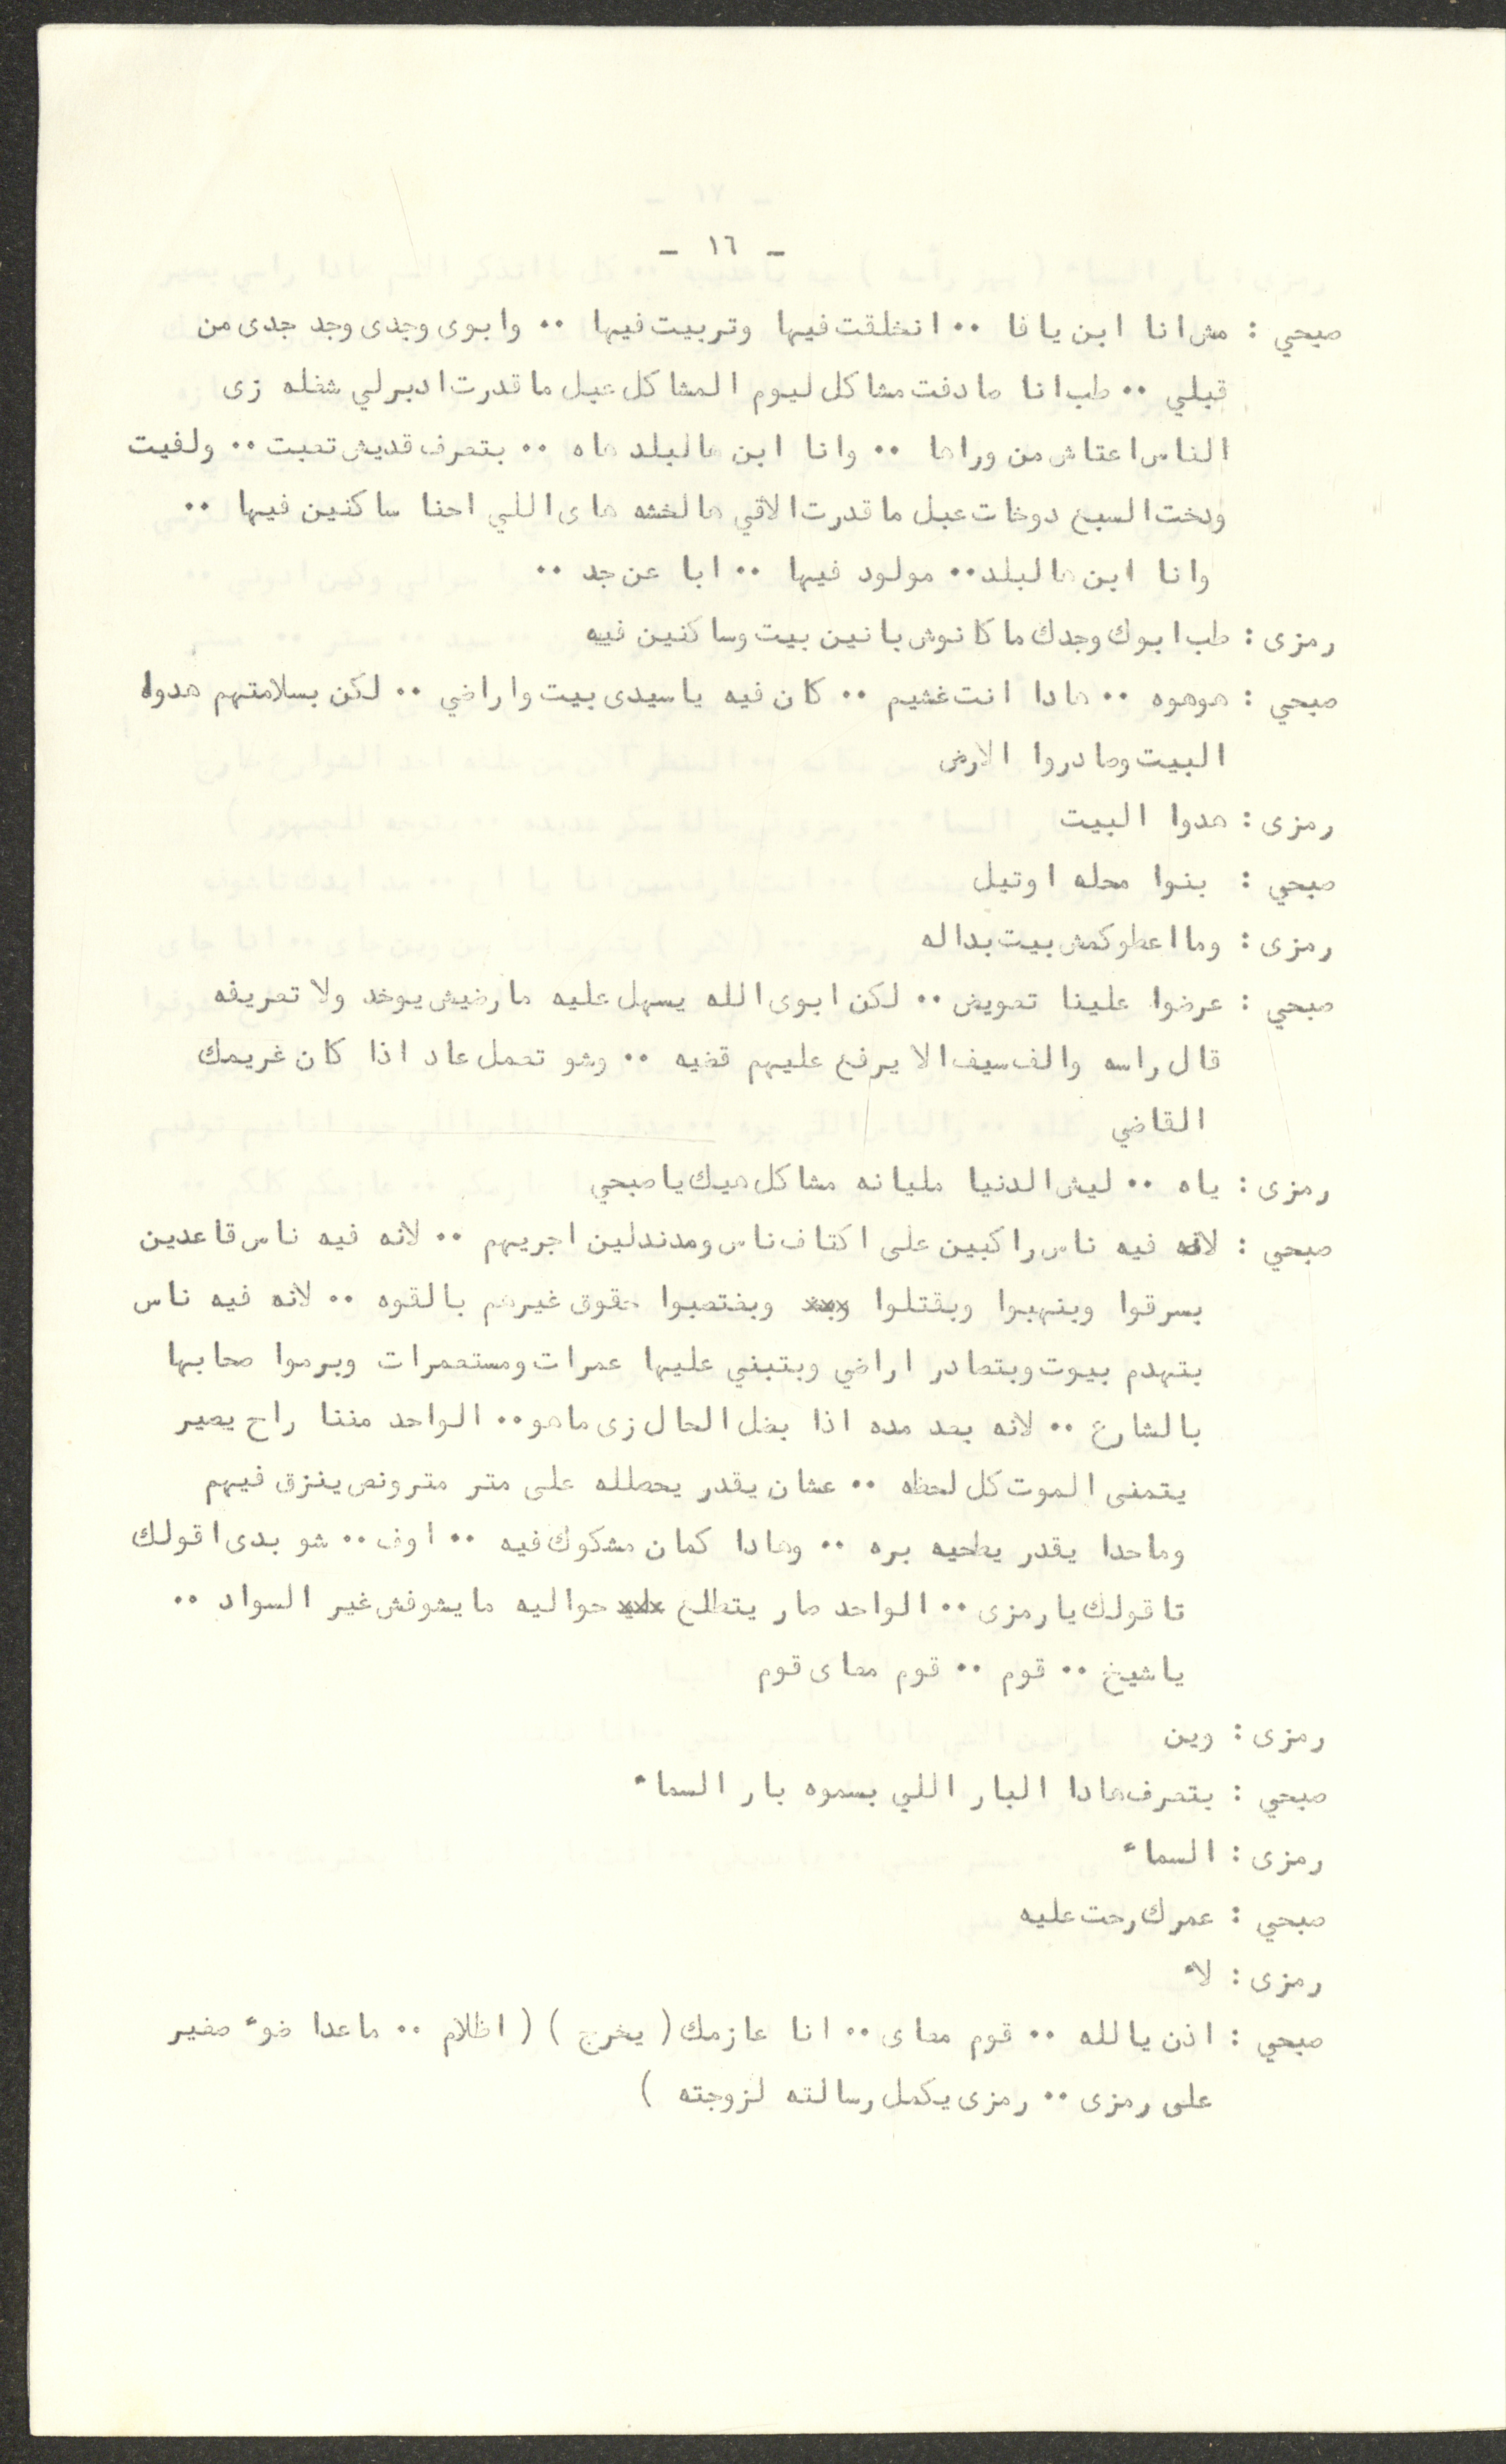 - ١٦ -
صبحي : مش انا ابن يافا ٠٠ انخلقت فيها وتربيت فيها ٠٠ وابوى وجدى وجد جدى من
قبلي ٠٠ طب انا صادفت مشاكل ليوم المشاكل عبل ما قدرت ادبرلي شغله زى
الناس اعتاش من وراها ٠٠ وانا ابن هالبلد هاه ٠٠ بتعرف قديش تعبت ٠٠ ولفيت
ودخت السبع دوخات عبل ما قدرت الاقي هالخشه هاى اللي احنا ساكنين فيها ٠٠
وانا ابن هالبلد ٠٠ مولود فيها ٠٠ ابا عن جد ٠٠
رمزى : طب ابوك وجدك ما كانوش بانين بيت وساكنين فيه
صبحي : هوهوه ٠٠ هادا انت غشيم ٠٠ كان فيه ياسيدى بيت واراضي ٠٠ لكن بسلامتهم هدوا
البيت وصادروا الارض
رمزى : هدوا البيت
صبحي : بنوا محله اوتيل
رمزى : وما اعطوكمش بيت بداله
صبحي : عرضوا علينا تعويض ٠٠ لكن ابوى الله يسهل عليه مارضيش يوخد ولا تعريفه
قال راسه والف سيف الا يرفع عليهم قضيه ٠٠ وشو تعمل عاد اذا كان غريمك
القاضي
رمزى : ياه ٠٠ ليش الدنيا مليانه مشاكل هيك ياصبحي
صبحي : لانه فيه ناس راكبين على اكتاف ناس ومدندلين اجريهم ٠٠ لانه فيه ناس قاعدين
بسرقوا وبنهبوا وبقتلوا xxx وبغتصبوا حقوق غيرهم بالقوه ٠٠ لانه فيه ناس
بتهدم بيوت وبتصادر اراضي وبتبني عليها عمرات ومستعمرات وبرموا صحابها
بالشارع ٠٠ لانه بعد مده اذا بضل الحال زى ماهو ٠٠ الواحد مننا راح يصير
يتمنى الموت كل لحظه ٠٠ عشان يقدر يحصلله على متر مترونص ينزق فيهم
وماحدا يقدر يطحيه بره ٠٠ وهادا كمان مشكوك فيه ٠٠ اوف ٠٠ شو بدى اقولك
تاقولك يارمزى ٠٠ الواحد صار يتطلع xxx حواليه مايشوفش غير السواد ٠٠
ياشيخ ٠٠ قوم ٠٠ قوم معاى قوم
رمزى : وين
صبحي : بتعرف هادا البار اللي بسموه بار السماء
رمزى : السماء
صبحي : عمرك رحت عليه
رمزى : لاء
صبحي : اذن يالله ٠٠ قوم معاى ٠٠ انا عازمك ( يخرج ) ( اظلام ٠٠ ماعدا ضوء صغير
على رمزى ٠٠ رمزى يكمل رسالته لزوجته )